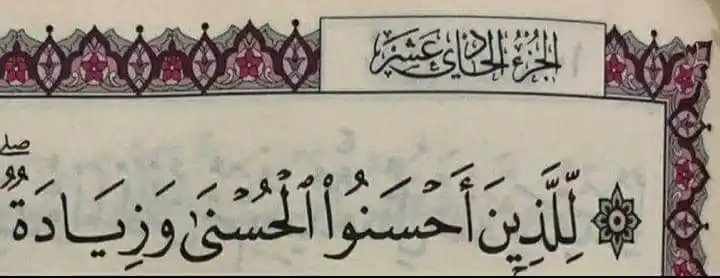 الجزء الحادي عشر
۞ لِّلَّذِينَ أَحْسَنُوا۟ ٱلْحُسْنَىٰ وَزِيَادَةٌ ۖ